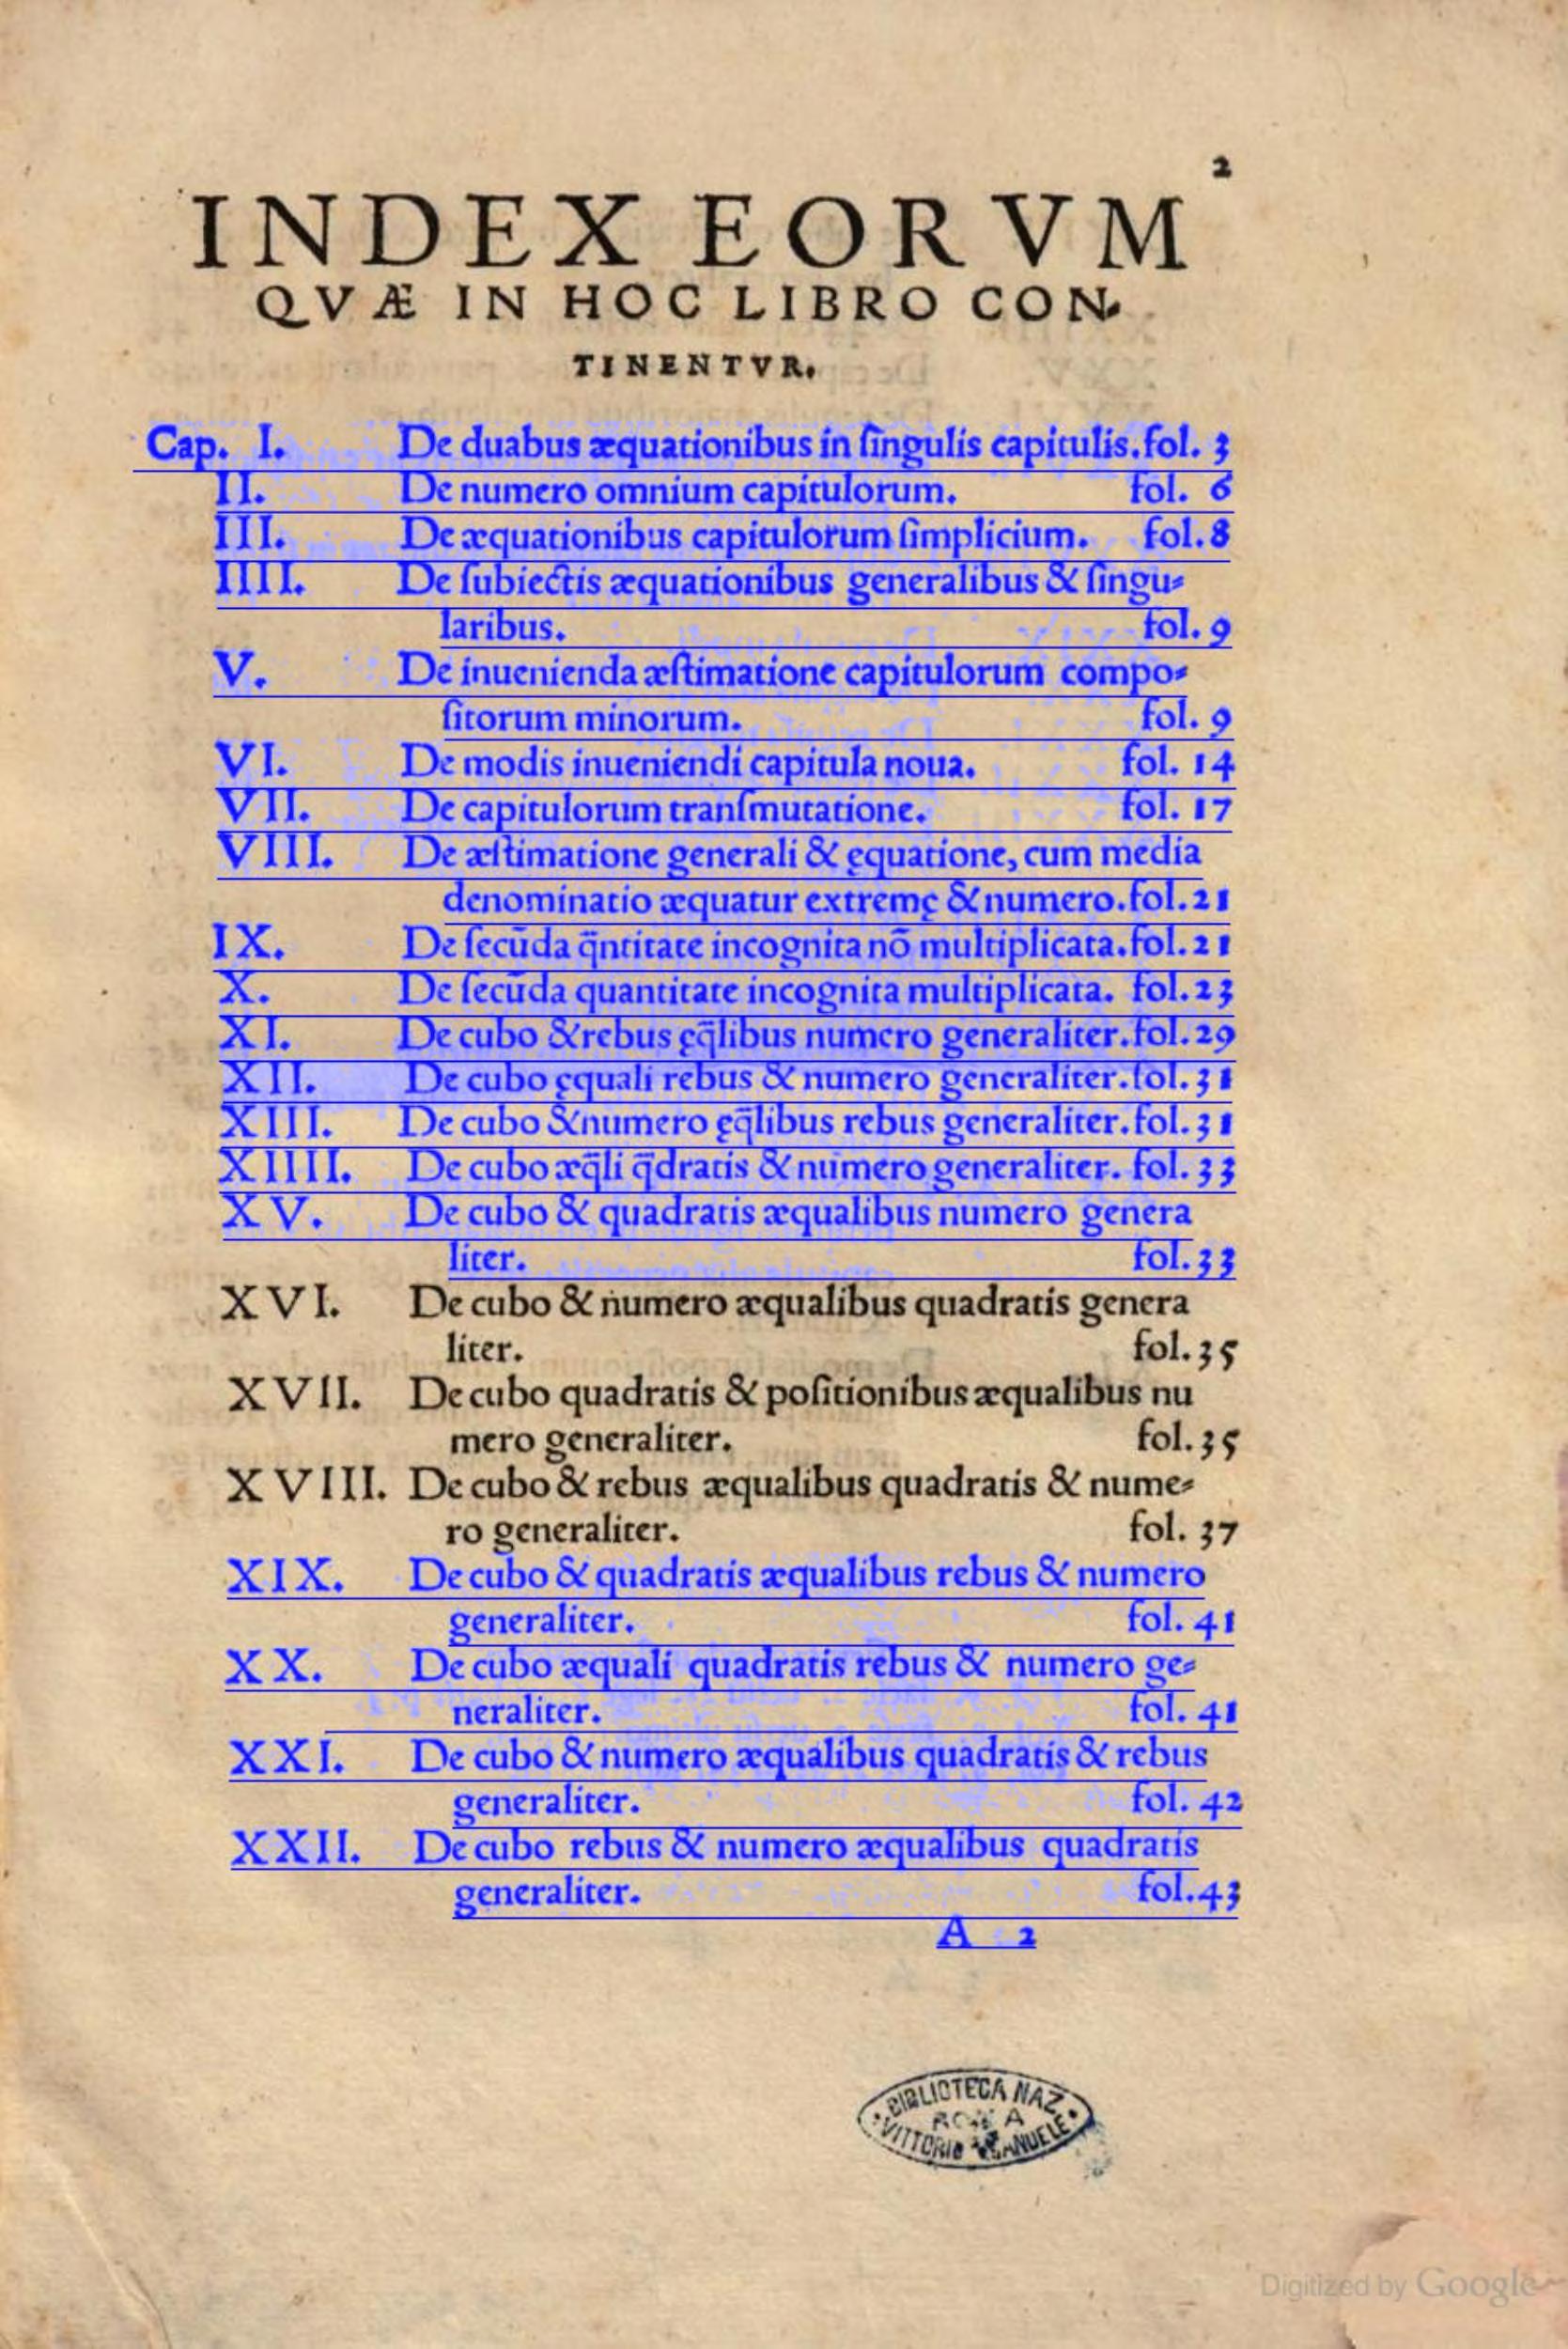 2
INDEX EORVM
QVÆ IN HOC LIBRO CON-
TINENTVR.
Cap. I. De duabus æquationibus in ſingulis capitulis. fol. 3
II. De numero omnium capitulorum. fol. 6
III. De æquationibus capitulorum ſimplicium. fol. 8
IIII. De ſubiectis æquationibus generalibus & ſingu-
laribus. fol. 9
V. De inuenienda æſtimatione capitulorum compo-
ſitorum minorum. fol. 9
VI. De modis inueniendi capitula noua. fol. 14
VII. De capitulorum tranſmutatione. fol. 17
VIII. De æſtimatione generali & ęquatione, cum media
denominatio æquatur extremę & numero. fol. 21
IX. De ſecūda q̃ntitate incognita nõ multiplicata. fol. 21
X. De ſecūda quantitate incognita multiplicata. fol. 23
XI. De cubo & rebus ęq̃libus numero generaliter. fol. 29
XII. De cubo ęquali rebus & numero generaliter. fol. 31
XIII. De cubo & numero ęq̃libus rebus generaliter. fol. 31
XIIII. De cubo æq̃li q̃dratis & numero generaliter. fol. 33
XV. De cubo & quadratis æqualibus numero genera
liter. fol. 33
XVI. De cubo & numero æqualibus quadratis genera
liter. fol. 35
XVII. De cubo quadratis & poſitionibus æqualibus nu
mero generaliter. fol. 35
XVIII. De cubo & rebus æqualibus quadratis & nume-
ro generaliter. fol. 37
XIX. De cubo & quadratis æqualibus rebus & numero
generaliter. fol. 41
XX. De cubo æquali quadratis rebus & numero ge-
neraliter. fol. 41
XXI. De cubo & numero æqualibus quadratis & rebus
generaliter. fol. 42
XXII. De cubo rebus & numero æqualibus quadratis
generaliter. fol. 43
A 2
BIBLIOTECA NAZ.
ROMA
VITTORIO EMANUELE
Digitized by Google